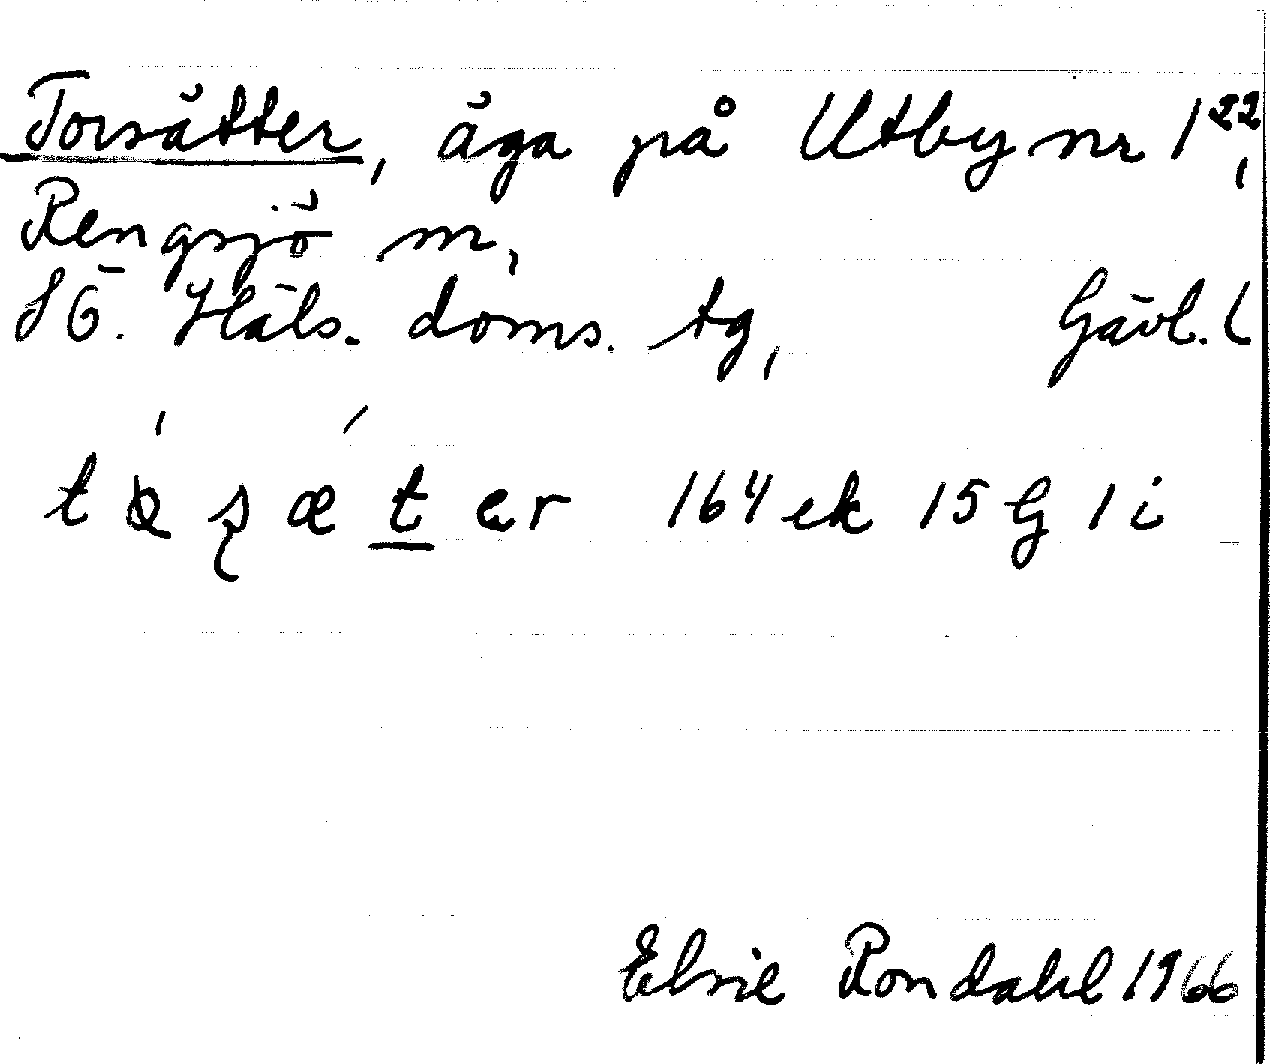 Torsätter, äga på Utby nr 1²²,
Rengsjö sn,
SÖ. Häls. doms. tg, Gävl. l
t s æ t er 164 ek 15 G 1 i
Elsie Rondahl 1966